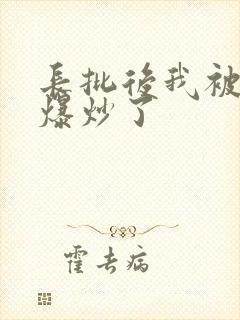 長批後我被
爆炒了
霍去病